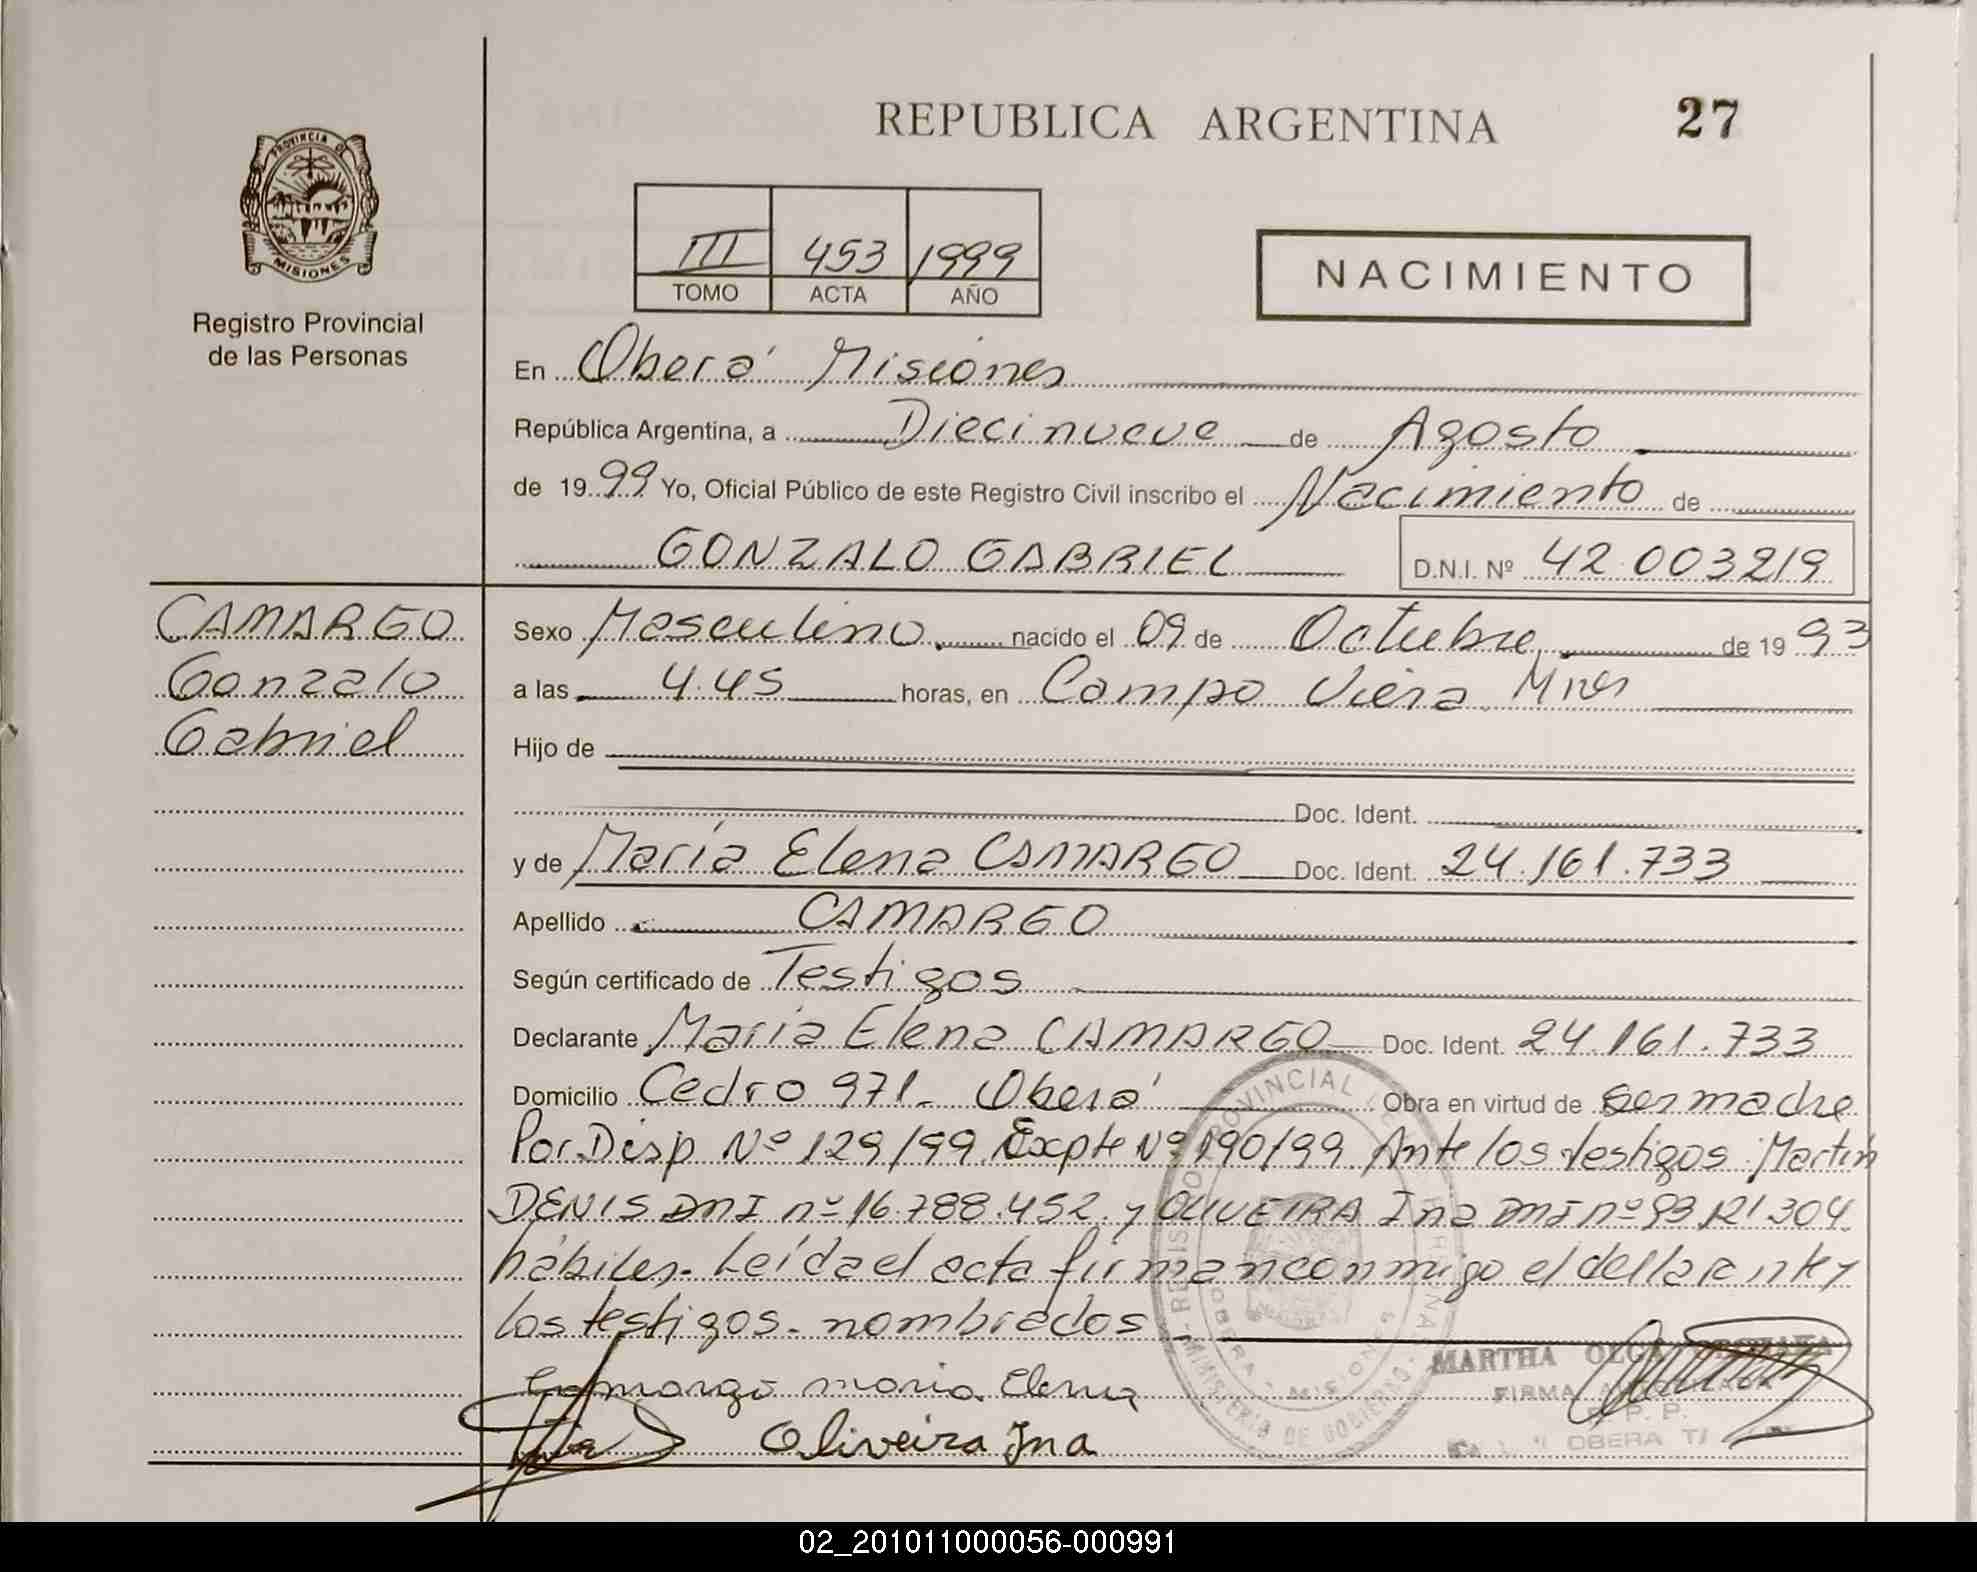 REPUBLICA ARGENTINA
27
PROVINCIA DE
MISIONES
Registro Provincial
de las Personas
III 453 1999
TOMO ACTA AÑO
NACIMIENTO
En Oberá Misiones
República Argentina, a Diecinueve de Agosto
de 1999 Yo, Oficial Público de este Registro Civil inscribo el Nacimiento de
GONZALO GABRIEL D.N.I. Nº 42.003219
CAMARGO
Gonzalo
Gabriel
Sexo Masculino nacido el 09 de Octubre de 1993
a las 4.45 horas, en Campo Viera Mnes
Hijo de
Doc. Ident.
y de María Elena CAMARGO Doc. Ident. 24.161.733
Apellido CAMARGO
Según certificado de Testigos
Declarante María Elena CAMARGO Doc. Ident. 24.161.733
Domicilio Cedro 971- Oberá Obra en virtud de ser madre
Por Disp Nº 129/99 Expte Nº 190/99 Ante los testigos: Martin
DENIS DNI nº 16.788.452 y OLIVEIRA Ina DNI nº 93.121.304
hábiles. Leída el acta firman conmigo el declarante y
los testigos nombrados
Camargo maria Elena
Oliveira Ina
REGISTRO PROVINCIAL DE LAS PERSONAS
MINISTERIO DE GOBIERNO
OBERA - MISIONES
MARTHA OLGA
FIRMA AUTORIZADA
R. P. P.
OBERA
02_201011000056-000991